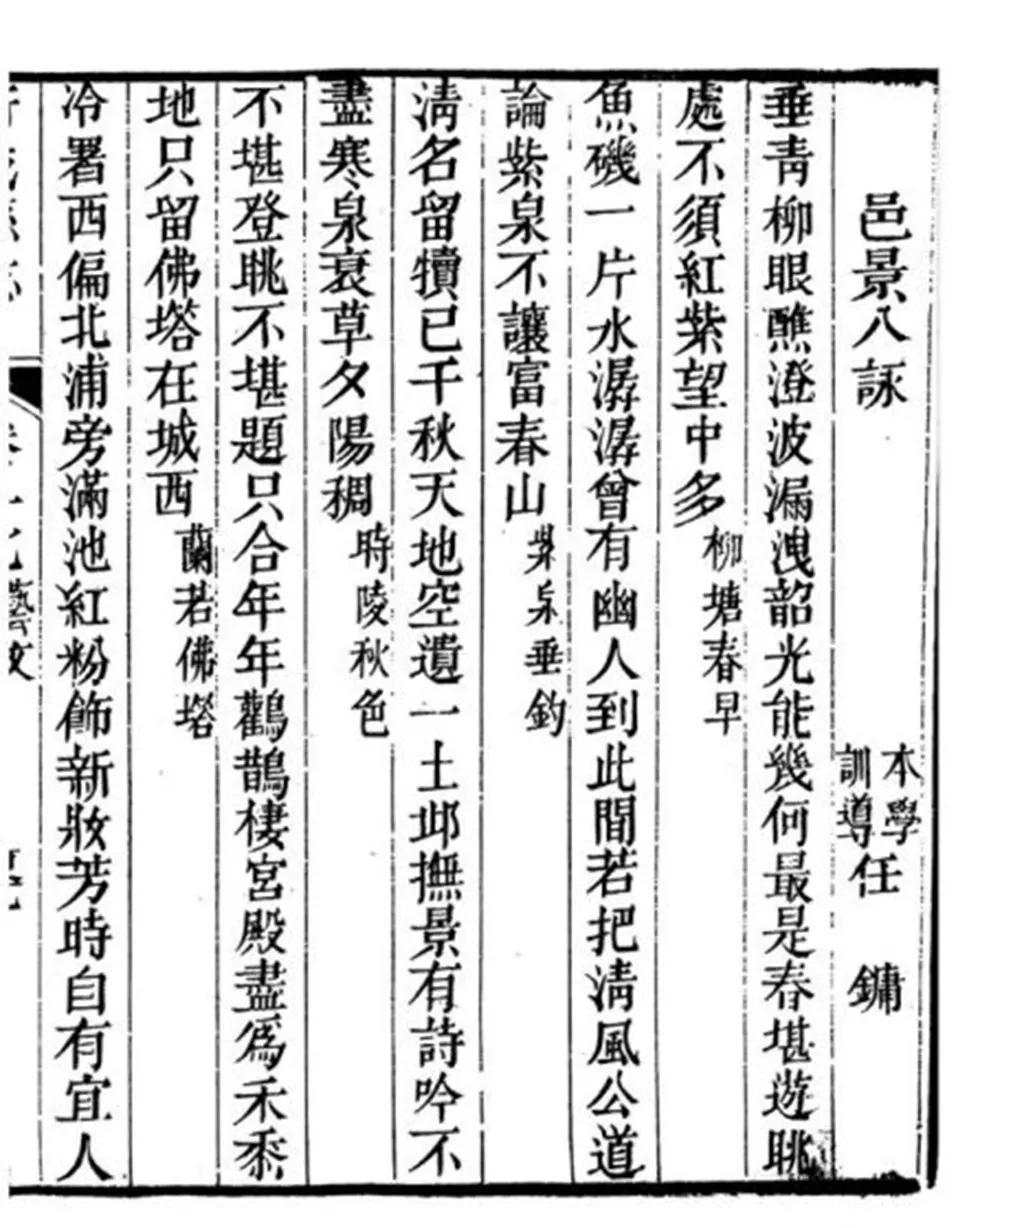 邑景八詠 本學訓導任 鏞
垂青柳眼醮澄波漏洩韶光能幾何最是春堪遊眺
處不須紅紫望中多柳塘春早
魚磯一片水潺潺曾有幽人到此間若把清風公道
論紫泉不讓富春山紫泉垂釣
清名留犢已千秋天地空遺一土邱撫景有詩吟不
盡寒泉衰草夕陽稠時陵秋色
不堪登眺不堪題只合年年鸛鵲棲宮殿盡為禾黍
地只留佛塔在城西蘭若佛塔
冷署西偏北浦旁滿池紅粉飾新妝芳時自有宜人
藝文